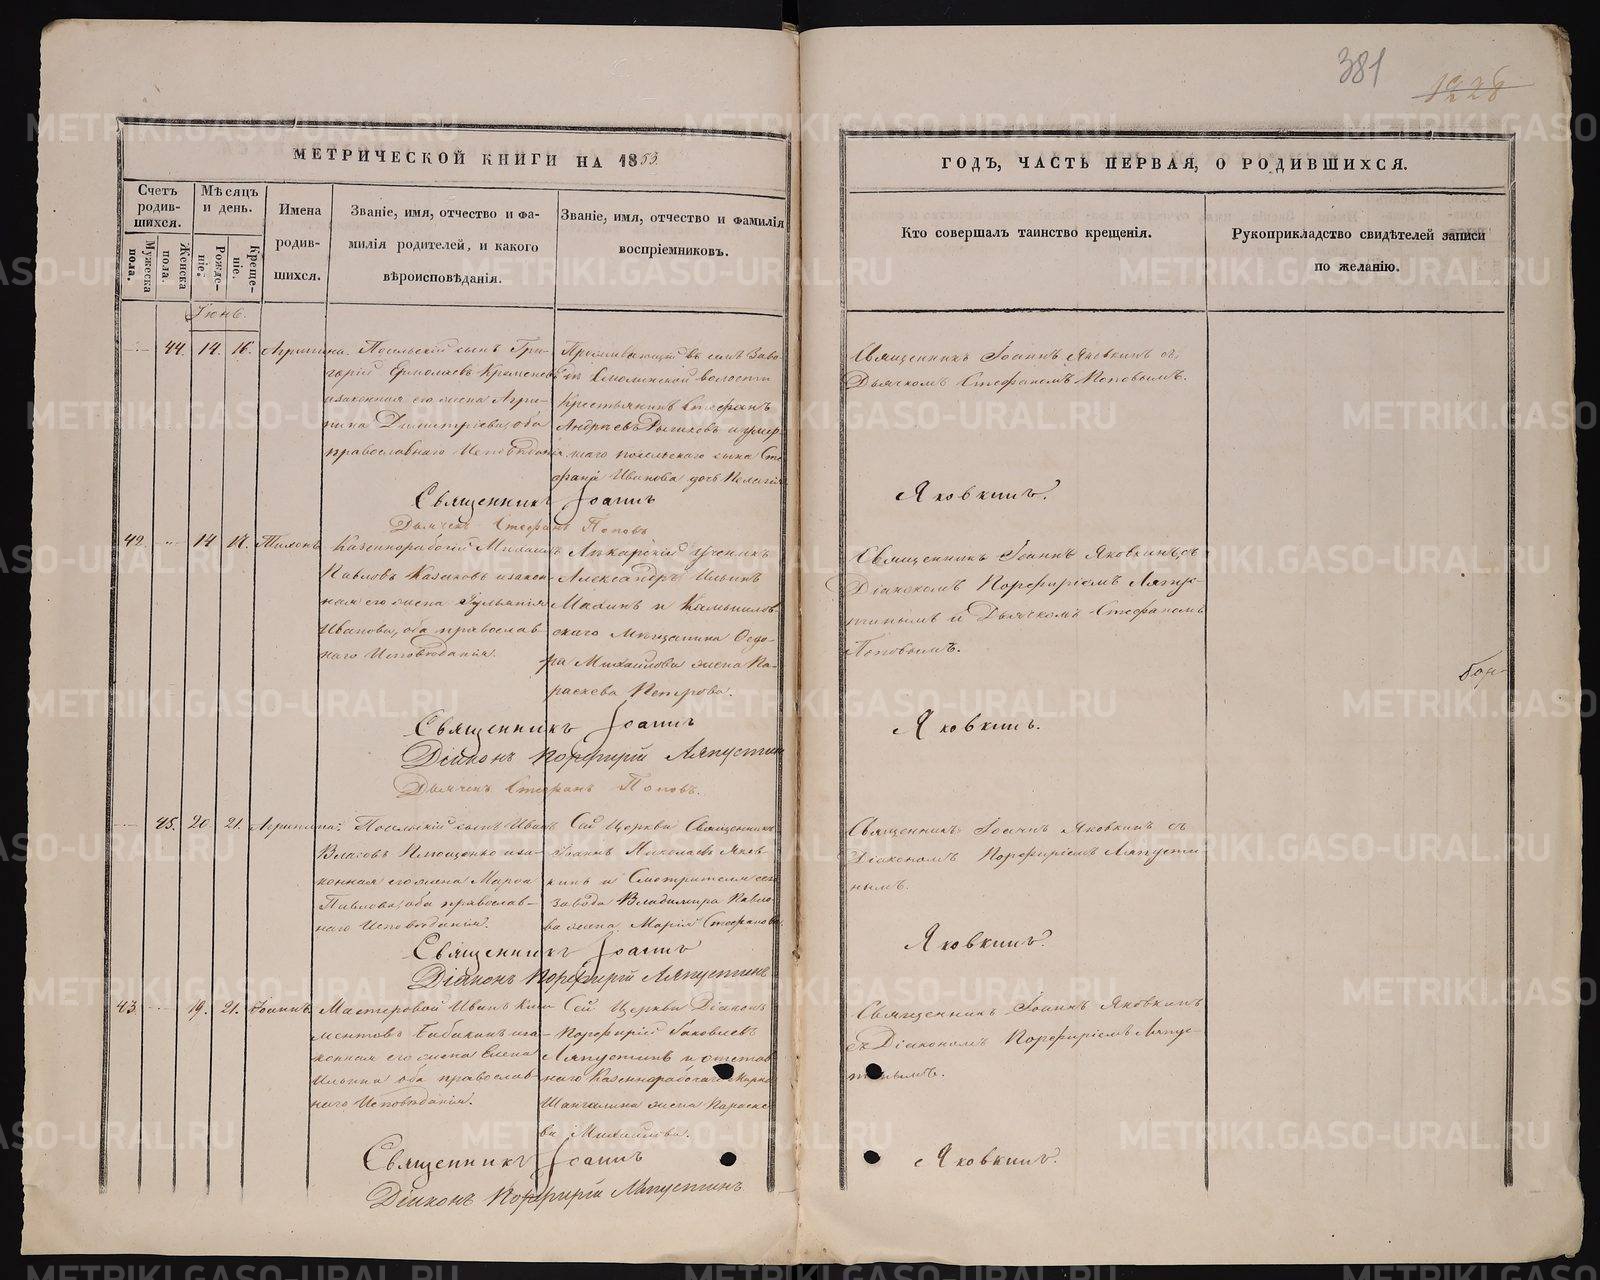 381
1228
МЕТРИЧЕСКОЙ КНИГИ НА 1853
ГОДЪ, ЧАСТЬ ПЕРВАЯ, О РОДИВШИХСЯ.
Счетъ родив-шихся.
Мужеска пола.
Женска пола.
Мѣсяцъ и день.
Рожде-ніе.
Креще-ніе.
Имена
родив-
шихся.
Званіе, имя, отчество и фа-
милія родителей, и какого
вѣроисповѣданія.
Званіе, имя, отчество и фамилія
воспріемниковъ.
Кто совершалъ таинство крещенія.
Рукоприкладство свидѣтелей записи
по желанію.
Іюнь.
44. 14. 16. Агрипина.
Посельскій сынъ Гри-
горій Ермолаевъ
изаконная его жена Агри-
пина Димитріева, оба
православнаго Исповѣданія
Проживающій въ семъ Заво-
дѣ Смолинской волости
Крестьянинъ Стефанъ
Андреевъ и умер-
шаго посельскаго сына Сте
фана Иванова дочь Пелагія
Священникъ Іоаннъ Яковкинъ съ
Дьячкомъ Стефаномъ Поповымъ.
Священникъ Іоаннъ Яковкинъ.
Дьячекъ Стефанъ Поповъ
42. 14 17. Тихонъ
Казеннорабочій Михаилъ
Павловъ Казаковъ изакон-
ная его жена Іульянія
Иванова, оба православ-
наго Исповѣданія.
Лѣкарскій ученикъ
Александръ Ильинъ
Махинъ и Камышлов-
скаго Мѣщанина Ѳедо-
ра Михайлова жена Па-
раскева Петрова.
Священникъ Іоаннъ Яковкинъ съ
Діакономъ Порфиріемъ Ляпус-
тинымъ и Дьячкомъ Стефаномъ
Поповымъ.
Священникъ Іоаннъ Яковкинъ.
Діаконъ Порфирій Ляпустин
Дьячекъ Стефанъ Поповъ.
45. 20 21. Агрипина.
Посельскій сынъ Иванъ
Власовъ иза-
конная его жена Марѳа
Павлова, оба православ-
наго Исповѣданія.
Сей Церкви Священникъ
Іоаннъ Николаевъ Яков
кинъ и Смотрителя сего
завода Владимира Павло-
ва жена Марія Стефанова.
Священникъ Іоаннъ Яковкинъ съ
Діакономъ Порфиріемъ Ляпусти
нымъ.
Священникъ Іоаннъ Яковкинъ.
Діаконъ Порфирій Ляпустинъ
43. 19. 21. Іоаннъ.
Мастеровой Иванъ Кли-
ментовъ Бабакинъ иза-
конная его жена Елена
Ильина оба православ-
наго Исповѣданія.
Сей Церкви Діаконъ
Порфирій Іаковлевъ
Ляпустинъ и отстав
наго Казеннорабочаго
жена Параске
ва Михайлова.
Священникъ Іоаннъ Яковкинъ
съ Діакономъ Порфиріемъ Ляпус-
тинымъ.
Священникъ Іоаннъ Яковкинъ.
Діаконъ Порфирій Ляпустинъ
METRIKI.GASO-URAL.RU